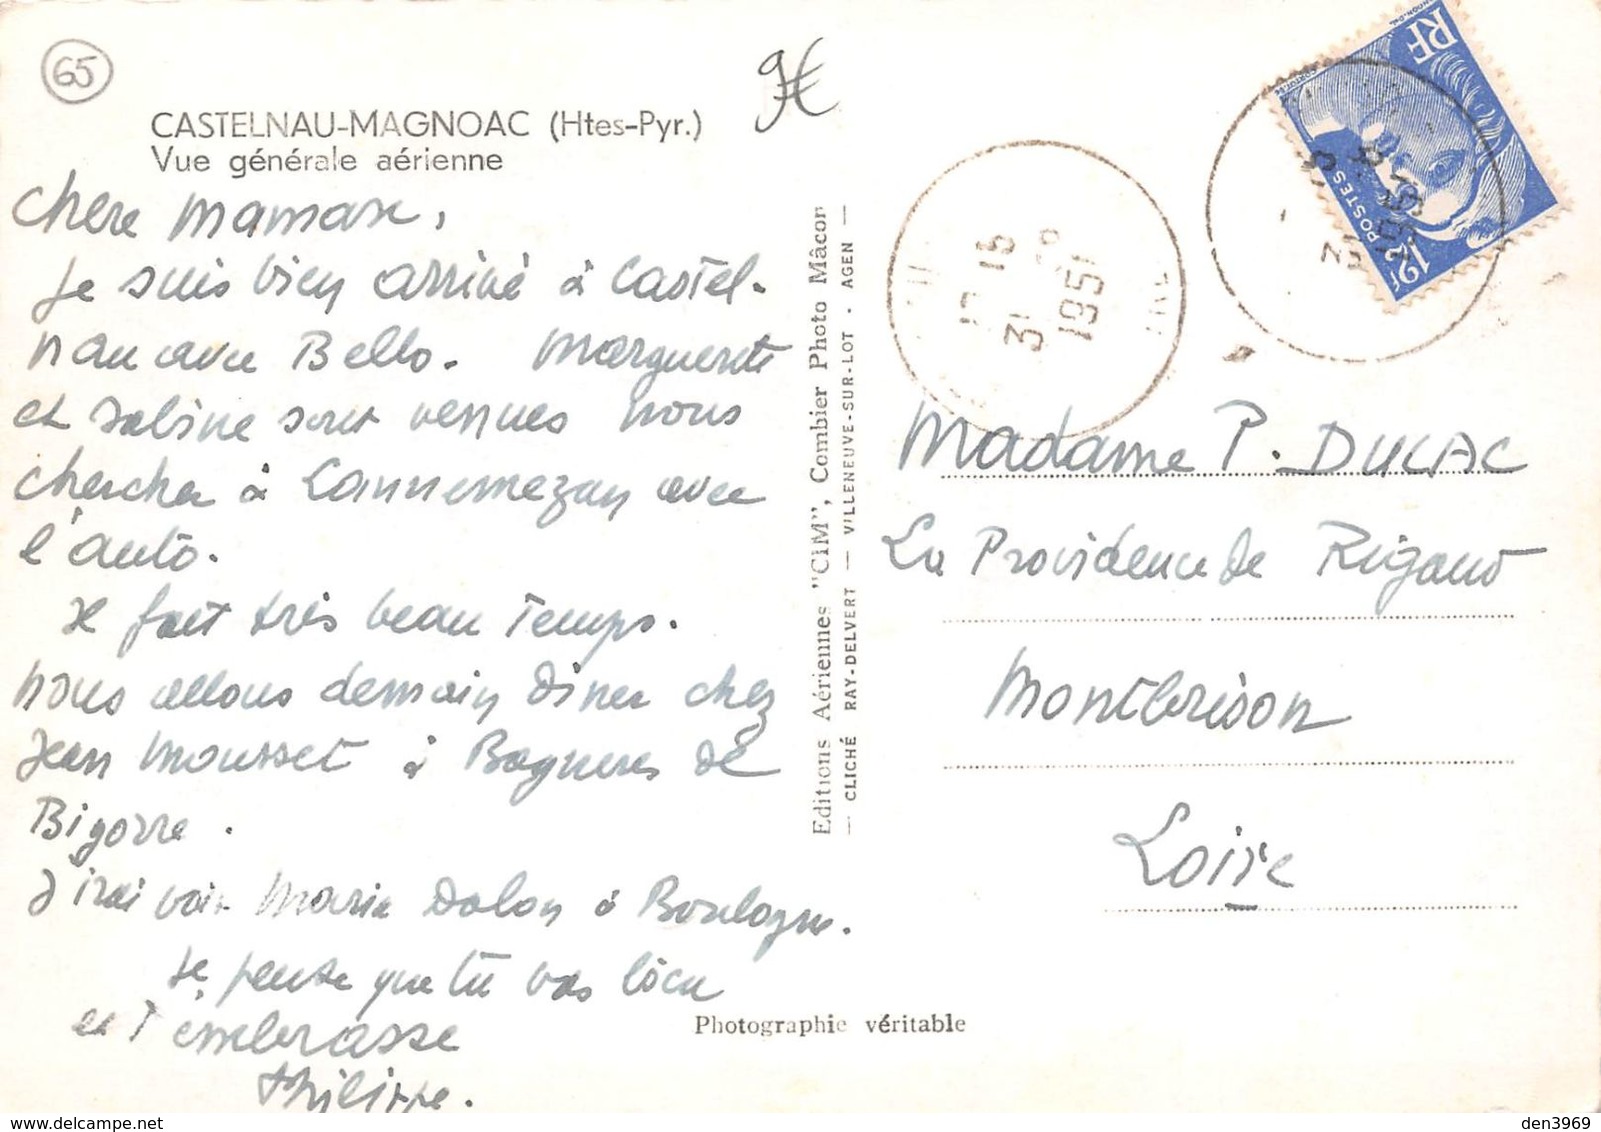 65
9€
CASTELNAU-MAGNOAC (Htes-Pyr.)
Vue générale aérienne
Chere Maman,
Je suis bien arrivé à Castel-
nau avec Bello. Marguerite
et Sabine sont venues nous
chercher à Lannemezan avec
l'auto.
Il fait très beau temps.
nous allons demain diner chez
Jean Mousset à Bagneres de
Bigorre.
J'irai voir Marie Dolon à Boulogne.
Je pense que tu vas bien
et t'embrasse
Philippe.
Editions Aériennes "CIM", Combier Photo Mâcon
— CLICHÉ RAY-DELVERT — VILLENEUVE-SUR-LOT - AGEN —
Photographie véritable
15
31 8
1951
RF
POSTES
12F
31 8
1951
Madame P. DULAC
La Providence de Rigaud
Montbrison
Loire
den3969